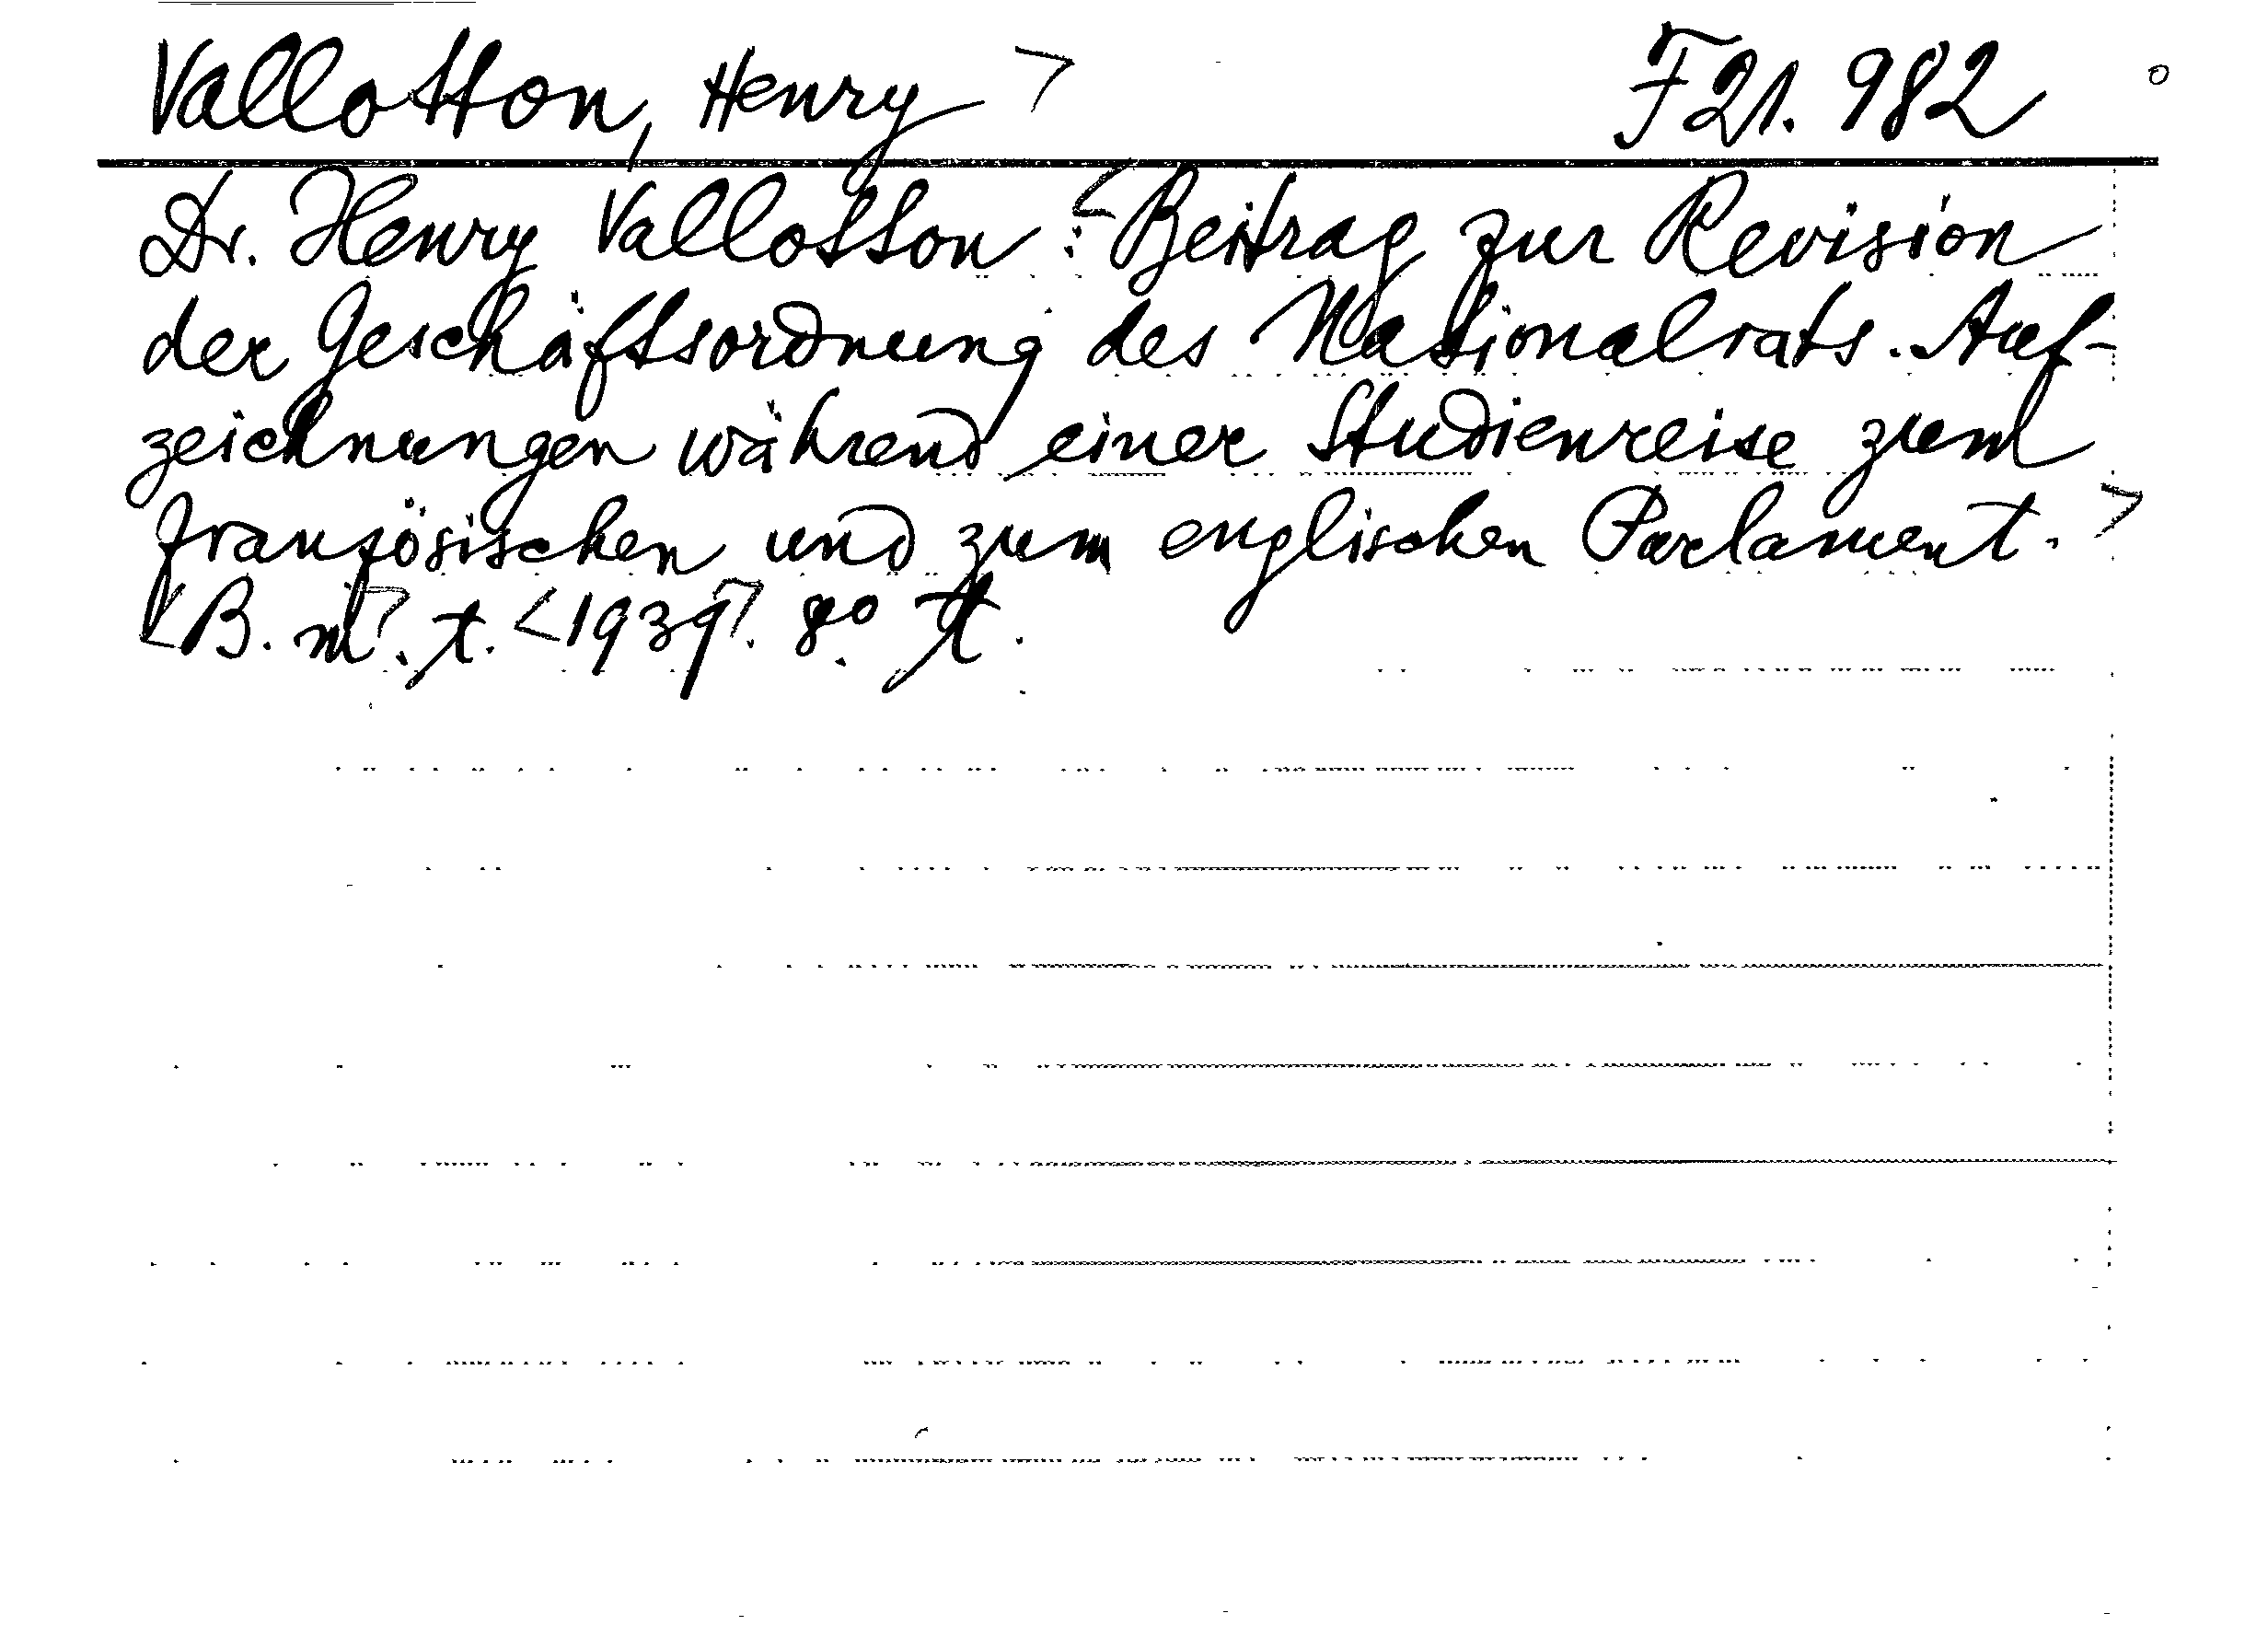 Vallotton, Henry > F 21. 982
Dr. Henry Vallotton: <Beitrag zur Revision
der Geschäftsordnung des Nationalrats. Auf-
zeichnungen während einer Studienreise zum
französischen und zum englischen Parlament.>
<B. m>. t. <1939>. 8°. t.